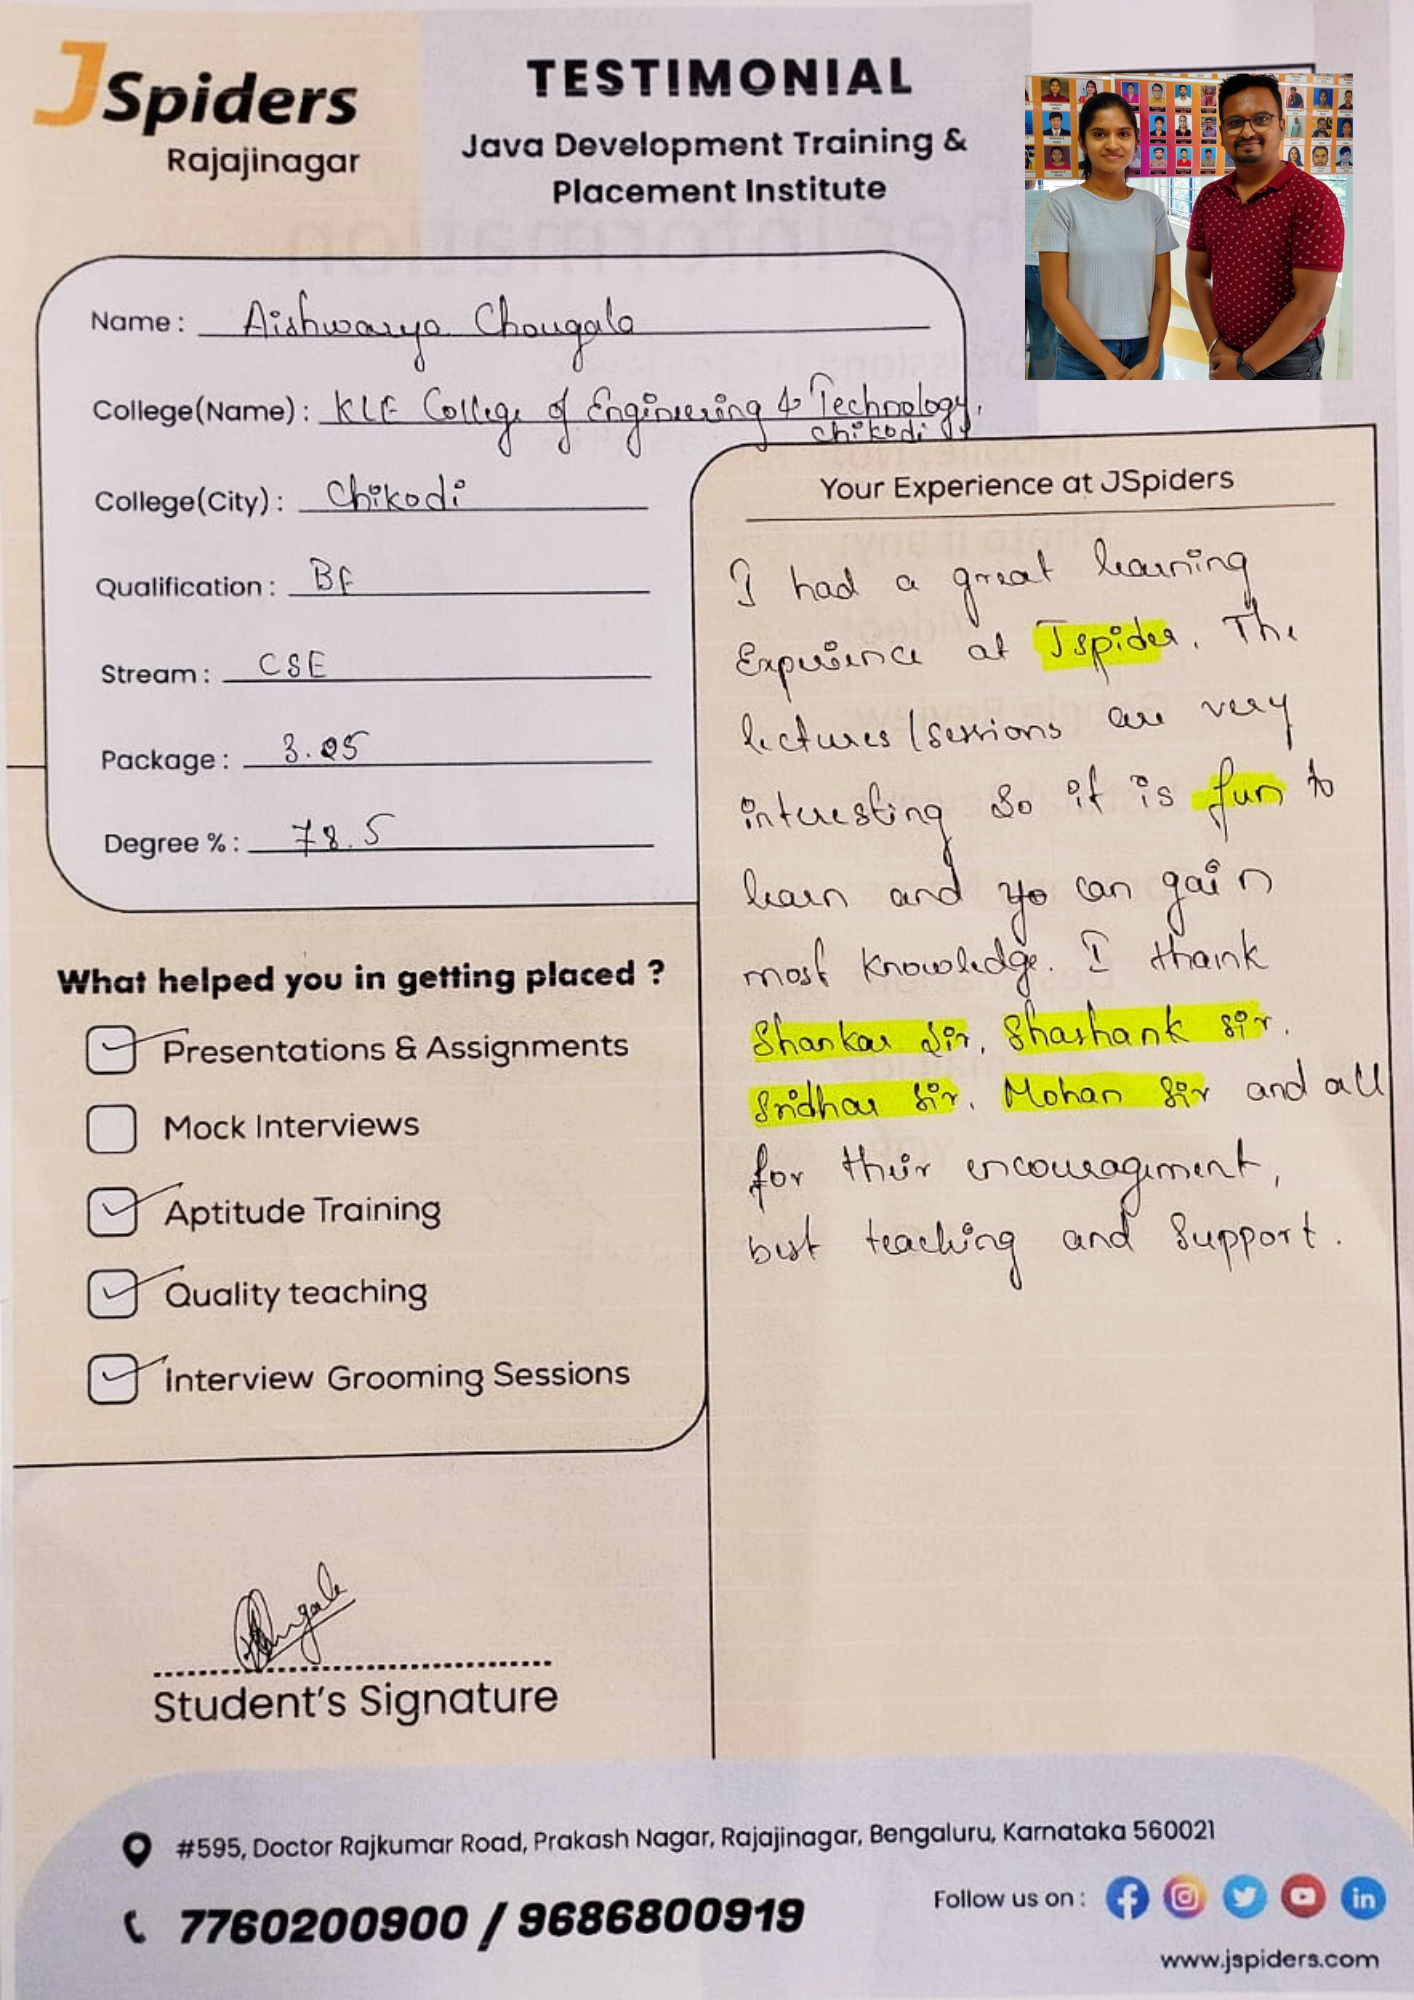 JSpiders
Rajajinagar
TESTIMONIAL
Java Development Training &
Placement Institute
Name : Aishwarya Chougala
College(Name) : KLE College of Engineering & Technology,
Chikodi
College(City) : Chikodi
Qualification : BE
Stream : CSE
Package : 3.25
Degree % : 78.5
What helped you in getting placed ?
Presentations & Assignments
Mock Interviews
Aptitude Training
Quality teaching
Interview Grooming Sessions
Student's Signature
Your Experience at JSpiders
I had a great learning
Experience at Jspider. The
lectures/sessions are very
interesting so it is fun to
learn and yo can gain
most knowledge. I thank
Shankar Sir, Shashank sir.
Sridhar Sir, Mohan Sir and all
for their encouragement,
best teaching and support.
#595, Doctor Rajkumar Road, Prakash Nagar, Rajajinagar, Bengaluru, Karnataka 560021
7760200900 / 9686800919
Follow us on :
www.jspiders.com